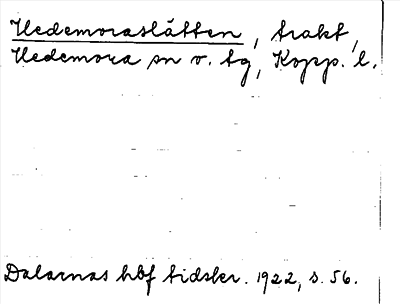 Hedemoraslätten, trakt,
Hedemora sn v. tg, Kopp. l.
Dalarnas hbf tidskr. 1922, s. 56.